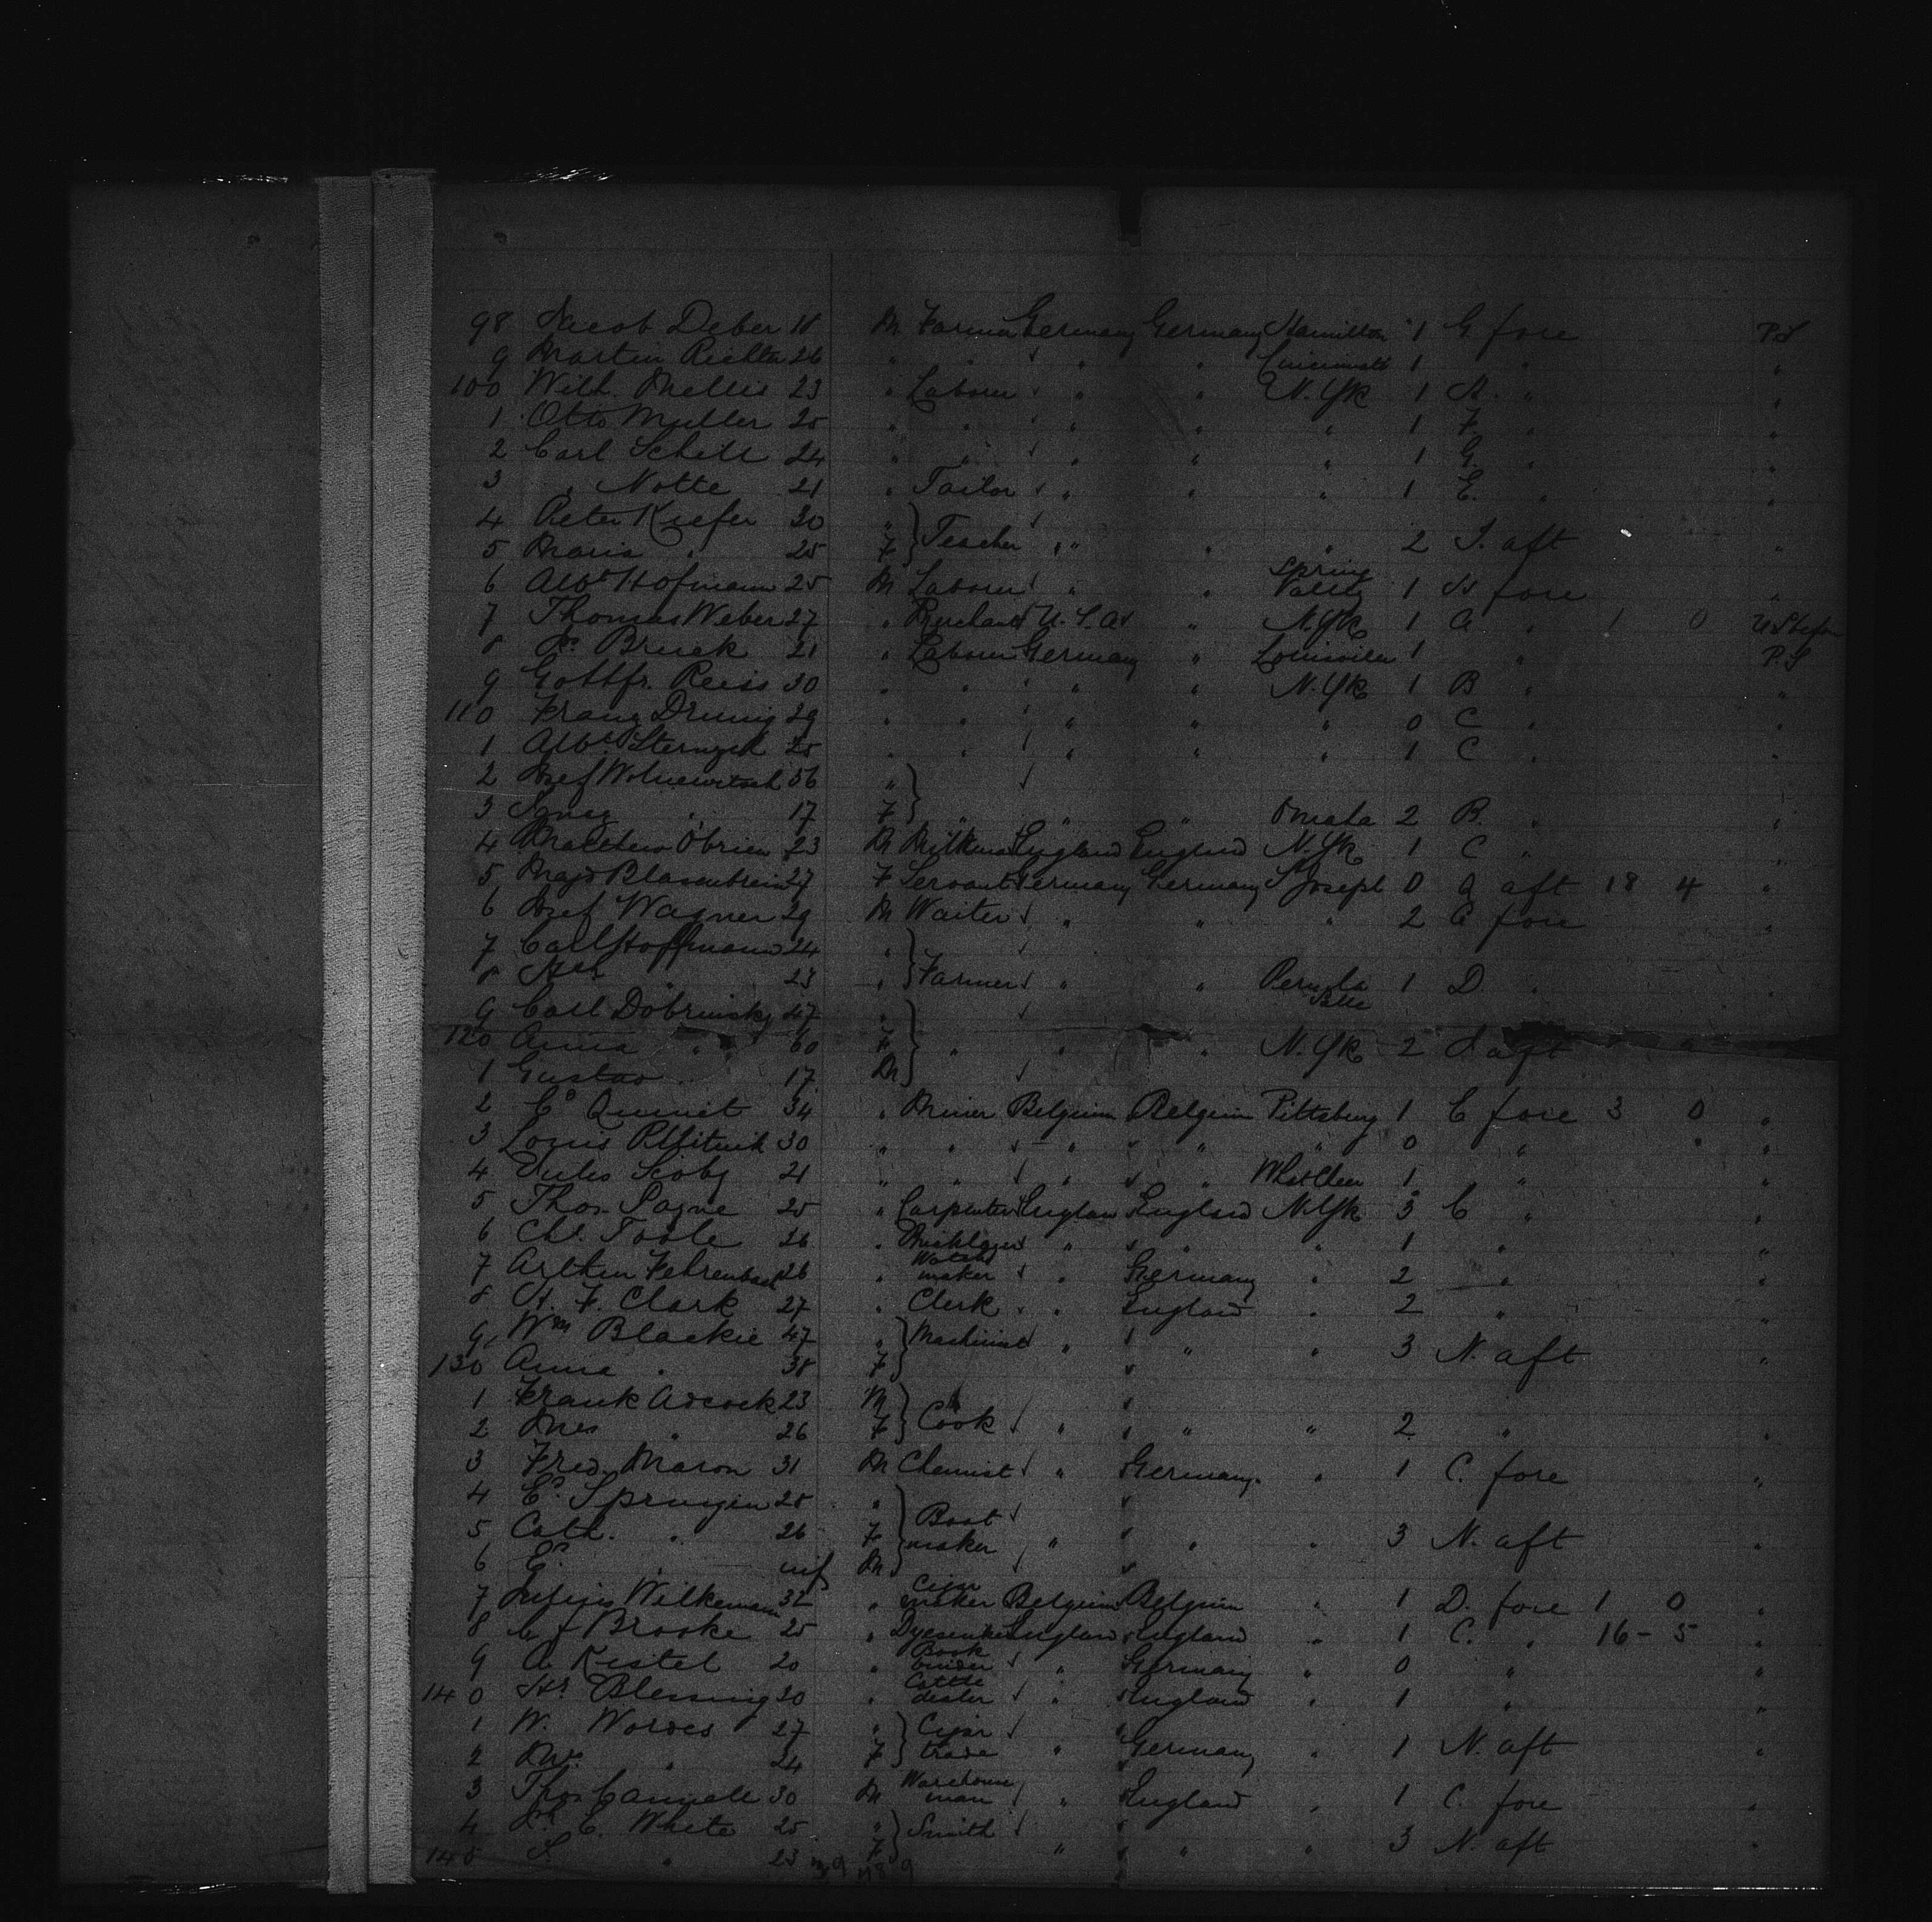 98 Jacob Deber 18 M Farmer Germany Germany Hamilton 1 G fore P.S
9 Martin Richter 26 " " " " Cincinnati 1 " "
100 Wilh. Mellis 23 " Laborer " " N. Yk 1 A. " "
1 Otto Muller 25 " " " " " 1 F. " "
2 Carl Schell 24 " " " " " 1 G. " "
3 " Notte 21 " Tailor " " " 1 E. " "
4 Peter Kiefer 30 "
5 Maria " 25 F Teacher " " " 2 J. aft "
6 Albt Hofmann 25 M Laborer " " Spring Valley 1 H fore "
7 Thomas Weber 27 " Merchant U.S.A " N. Yk 1 A " 1 0
8 Bruck 21 " Laborer Germany " Louisville 1 " P.S
9 Gottfr. Reiss 30 " " " " N. Yk 1 B " "
110 Franz 29 " " " " " 0 C " "
1 Albt 25 " " " " " 1 C " "
2 Josef 56 "
3 " 17 F " " " Omaha 2 B. " "
4 Matthew Obrien 23 M Milkman England England N. Yk 1 C " "
5 27 F Servant Germany Germany St Joseph 0 Q aft 18 4 "
6 Josef Wagner 29 M Waiter " " " 2 C fore "
7 Carl Hoffmann 24 "
8 " 23 " Farmer " " 1 D. " "
9 Carl Dobrinsky 47 "
120 Anna " 60 F " " " N. Yk 2 aft
1 Gustav " 17 M
2 Quinet 34 " Miner Belgium Belgium Pittsburg 1 C fore 3 0 "
3 Louis 30 " " " " " 0 " " "
4 Jules 21 " " " " What Cheer 1 " "
5 Thos. Payne 25 " Carpenter England England N. Yk 3 C " "
6 Chs. Toole 26 " Bricklayer " " " 1 " "
7 Arthur Fehrenbach 26 " Watch maker " Germany " 2 " "
8 H. F. Clark 27 " Clerk " England " 2 " "
9 Wm Blackie 47 " Machinist " " " 3 N. aft "
130 Anna " 38 F
1 Frank Adcock 23 M
2 Mrs " 26 F Cook " " " 2 " "
3 Fred. Maron 31 M Chemist " Germany " 1 C. fore "
4 25 "
5 Cath. " 26 F Boot maker " " " 3 N. aft "
6 E. " inf M
7 Julius Wilkemann 32 " Cigar maker Belgium Belgium " 1 D. fore 1 0 "
8 Brooke 25 " England England " 1 C. " 16 - 5 "
9 A. Kistel 20 " Book binder " Germany " 0 " "
140 Hr Blessing 30 " Cattle dealer " England " 1 " "
1 W. 27 " Cigar trade
2 Mrs " 24 F " Germany " 1 N. aft "
3 Thos Cannell 30 M Warehouse man " England " 1 C. fore "
4 C. White 25 " Smith
145 S. " 23 F " " " 3 N. aft "